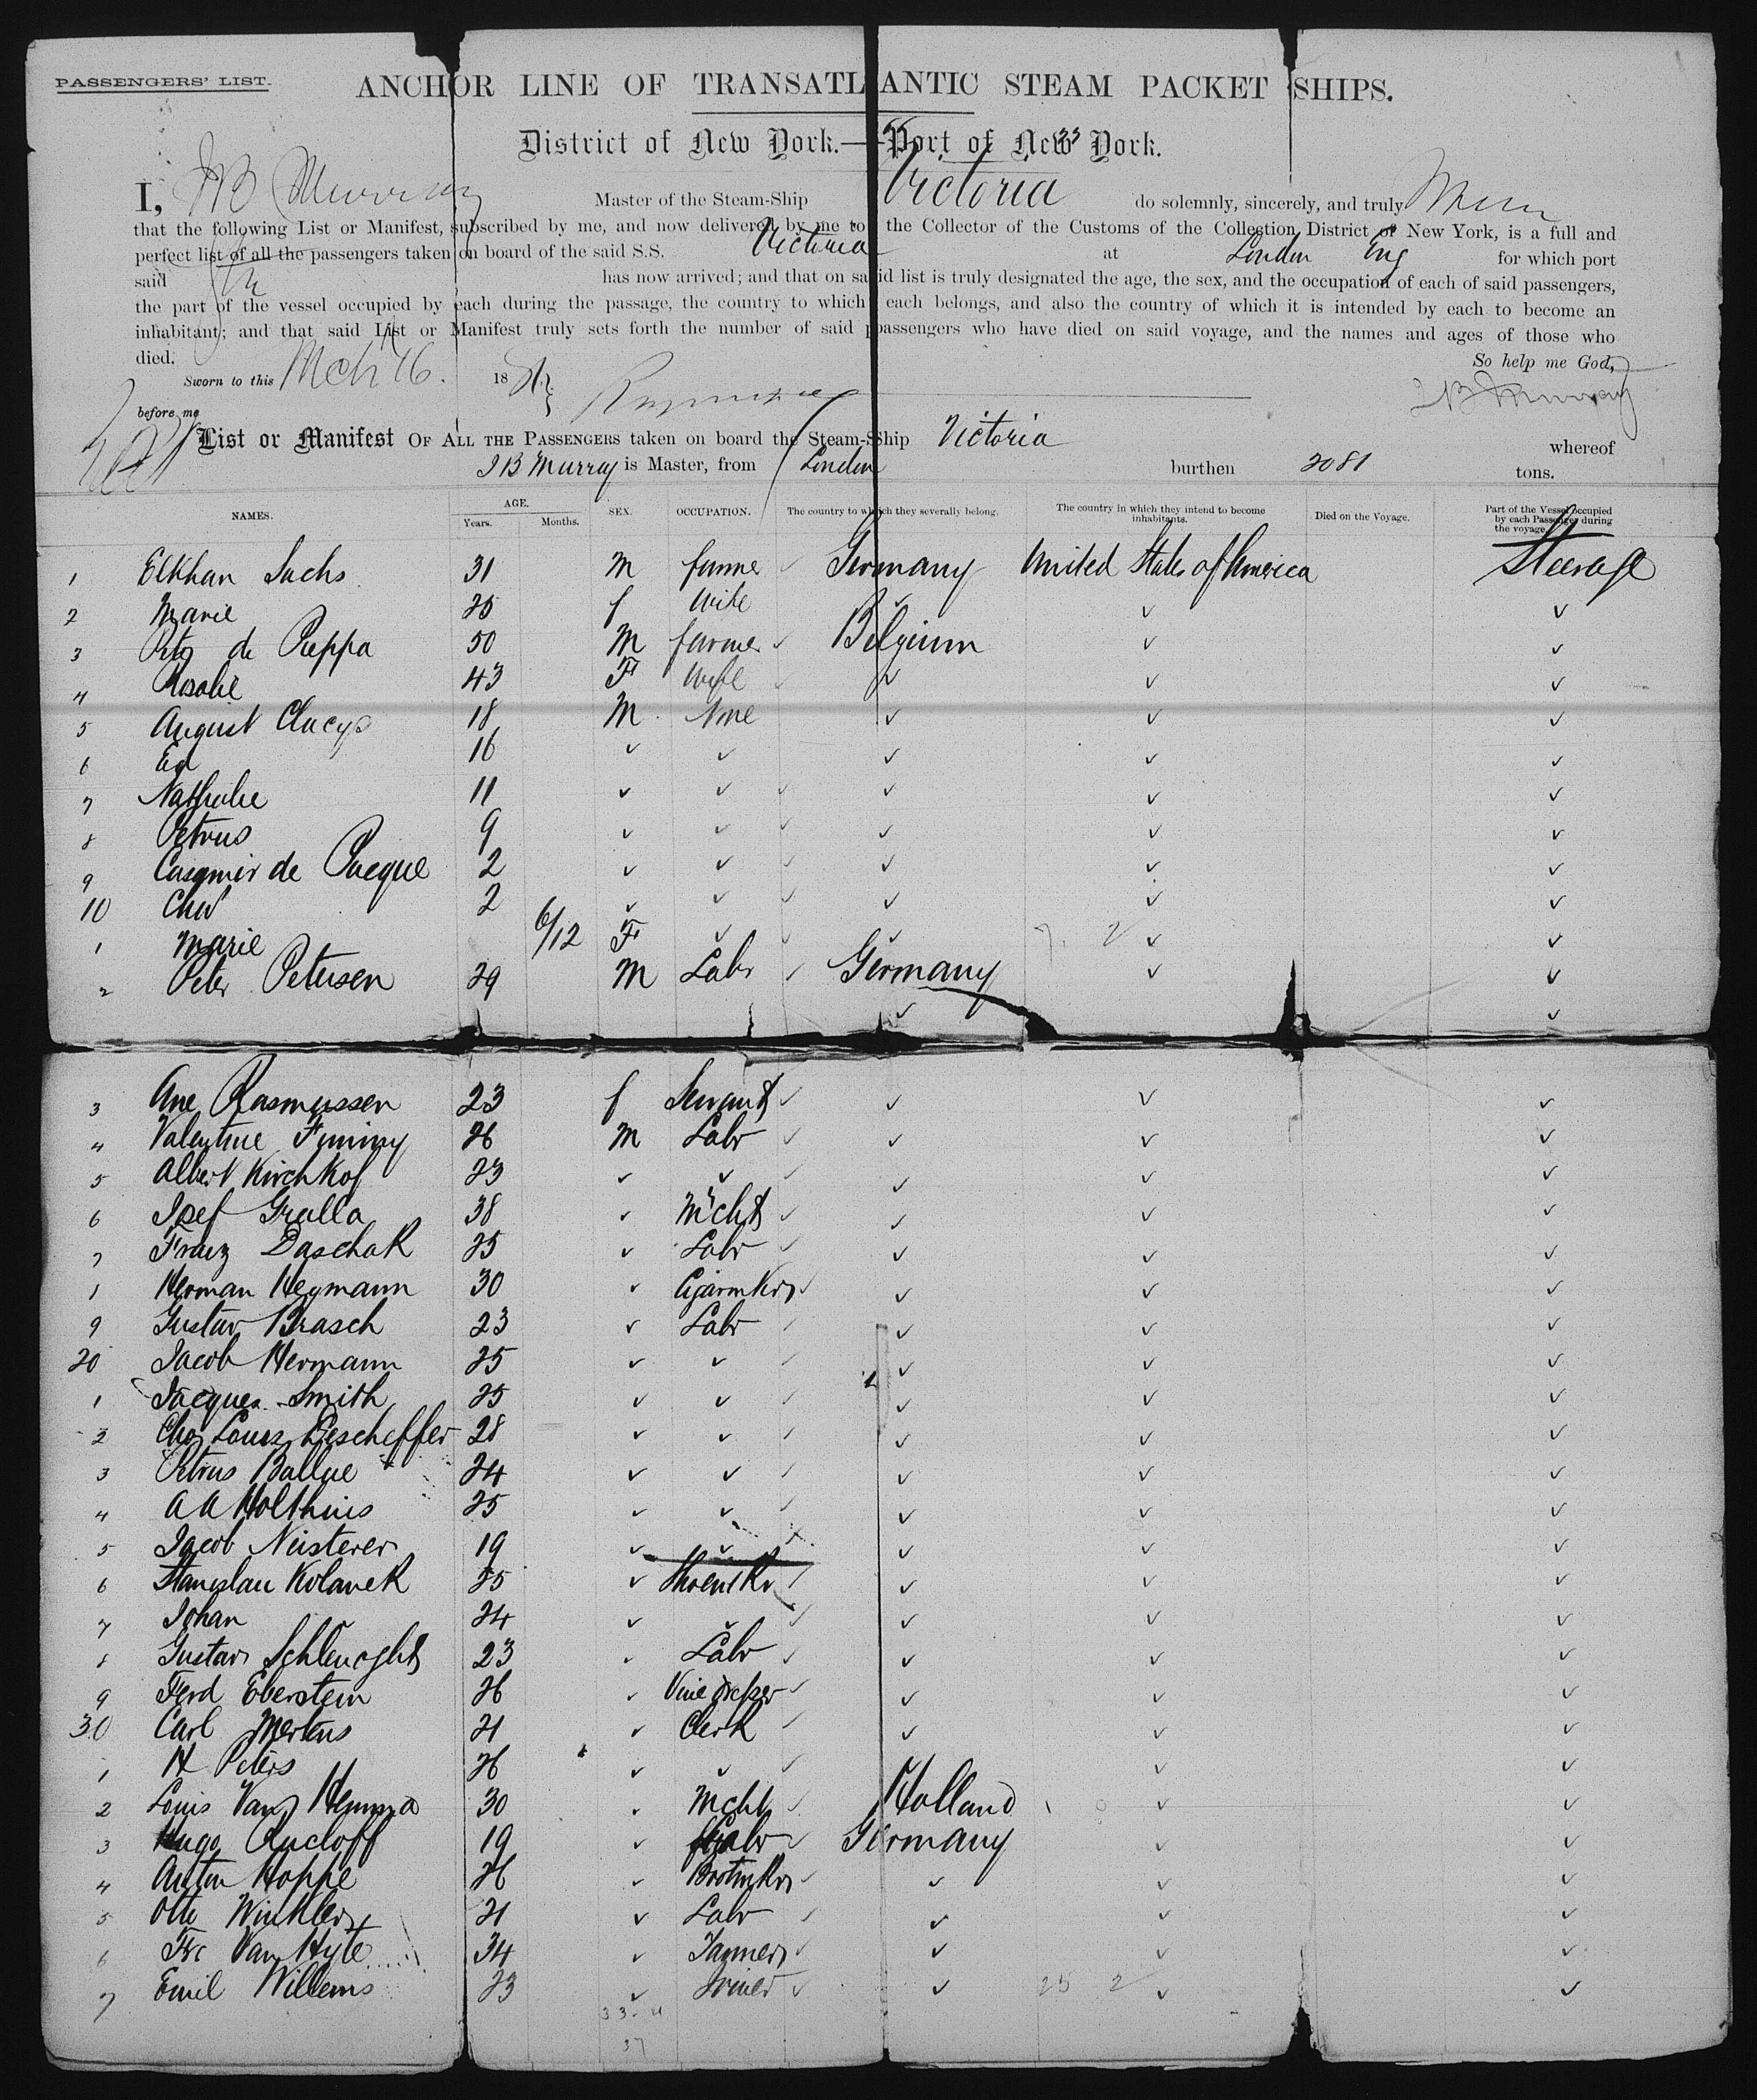 PASSENGERS' LIST.
ANCHOR LINE OF TRANSATLANTIC STEAM PACKET SHIPS.
District of New York.—Port of New York.
33
I, J B Murray Master of the Steam-Ship Victoria do solemnly, sincerely, and truly
that the following List or Manifest, subscribed by me, and now delivered by me to the Collector of the Customs of the Collection District of New York, is a full and
perfect list of all the passengers taken on board of the said S.S. Victoria at London Eng for which port
said has now arrived; and that on said list is truly designated the age, the sex, and the occupation of each of said passengers,
the part of the vessel occupied by each during the passage, the country to which each belongs, and also the country of which it is intended by each to become an
inhabitant; and that said List or Manifest truly sets forth the number of said passengers who have died on said voyage, and the names and ages of those who
died. So help me God,
Sworn to this Mch 16. 18 J B Murray
before me
List or Manifest OF ALL THE PASSENGERS taken on board the Steam-Ship Victoria whereof
J B Murray is Master, from London burthen 2081 tons.
NAMES. AGE. Years. Months. SEX. OCCUPATION. The country to which they severally belong. The country in which they intend to become inhabitants. Died on the Voyage. Part of the Vessel occupied by each Passenger during the voyage
1 Elkhan Sachs 31 M farmer Germany United States of America Steerage
2 Marie 25 f Wife ✓ ✓ ✓
3 de Pueppa 50 M farmer ✓ Belgium ✓ ✓
4 Rosalie 43 F Wife ✓ ✓ ✓ ✓
5 August Claeys 18 M None ✓ ✓ ✓
6 Ed 16 ✓ ✓ ✓ ✓ ✓
7 Nathalie 11 ✓ ✓ ✓ ✓ ✓ ✓
8 Petrus 9 ✓ ✓ ✓ ✓ ✓ ✓
9 Casimir de Paeque 2 ✓ ✓ ✓ ✓ ✓ ✓
10 2 ✓ ✓ ✓ ✓ ✓ ✓
1 Marie 6/12 F ✓ ✓ ✓ ✓ ✓
2 Peter Petersen 29 M Labr ✓ Germany ✓ ✓
✓ ✓
3 Ane Rasmussen 23 f Servant ✓ ✓ ✓ ✓
4 Valentine 26 M Labr ✓ ✓ ✓ ✓
5 Albert Kirchkof 23 ✓ ✓ ✓ ✓ ✓ ✓
6 Josef Gralla 38 ✓ Mcht ✓ ✓ ✓ ✓
7 Franz Daschak 25 ✓ Labr ✓ ✓ ✓ ✓
1 Herman Heymann 30 ✓ Cigarmkr ✓ ✓ ✓ ✓
9 Gustav Brasch 23 ✓ Labr ✓ ✓ ✓ ✓
20 Jacob Hermann 25 ✓ ✓ ✓ ✓ ✓ ✓
1 Jacques Smith 25 ✓ ✓ ✓ ✓ ✓ ✓
2 Chas Louis Lescheffer 28 ✓ ✓ ✓ ✓ ✓ ✓
3 Petrus Ballue 24 ✓ ✓ ✓ ✓ ✓ ✓
4 A A Holthuis 25 ✓ ✓ ✓ ✓ ✓ ✓
5 Jacob Neisterer 19 ✓ ✓ ✓ ✓ ✓
6 Stanislau Kolanek 25 ✓ Shoemkr ✓ ✓ ✓ ✓
7 Johan 24 ✓ ✓ ✓ ✓ ✓ ✓
8 Gustav 23 ✓ Labr ✓ ✓ ✓ ✓
9 Ferd Eberstein 26 ✓ Vine dresser ✓ ✓ ✓ ✓
30 Carl Mertens 21 ✓ Clerk ✓ ✓ ✓ ✓
1 H Peters 26 ✓ ✓ ✓ ✓ ✓
2 Louis Van 30 ✓ Mcht Holland ✓ ✓
3 Hugo Rucloff 19 ✓ Labr ✓ Germany ✓ ✓
4 Anton Hoppe 26 ✓ Bootmkr ✓ ✓ ✓ ✓
5 Otto Winkler 21 ✓ Labr ✓ ✓ ✓ ✓
6 Van Hyte 34 ✓ Tanner ✓ ✓ ✓ ✓
7 Emil Willems 23 ✓ Joiner ✓ ✓ 25 2 ✓ ✓
33-4
37